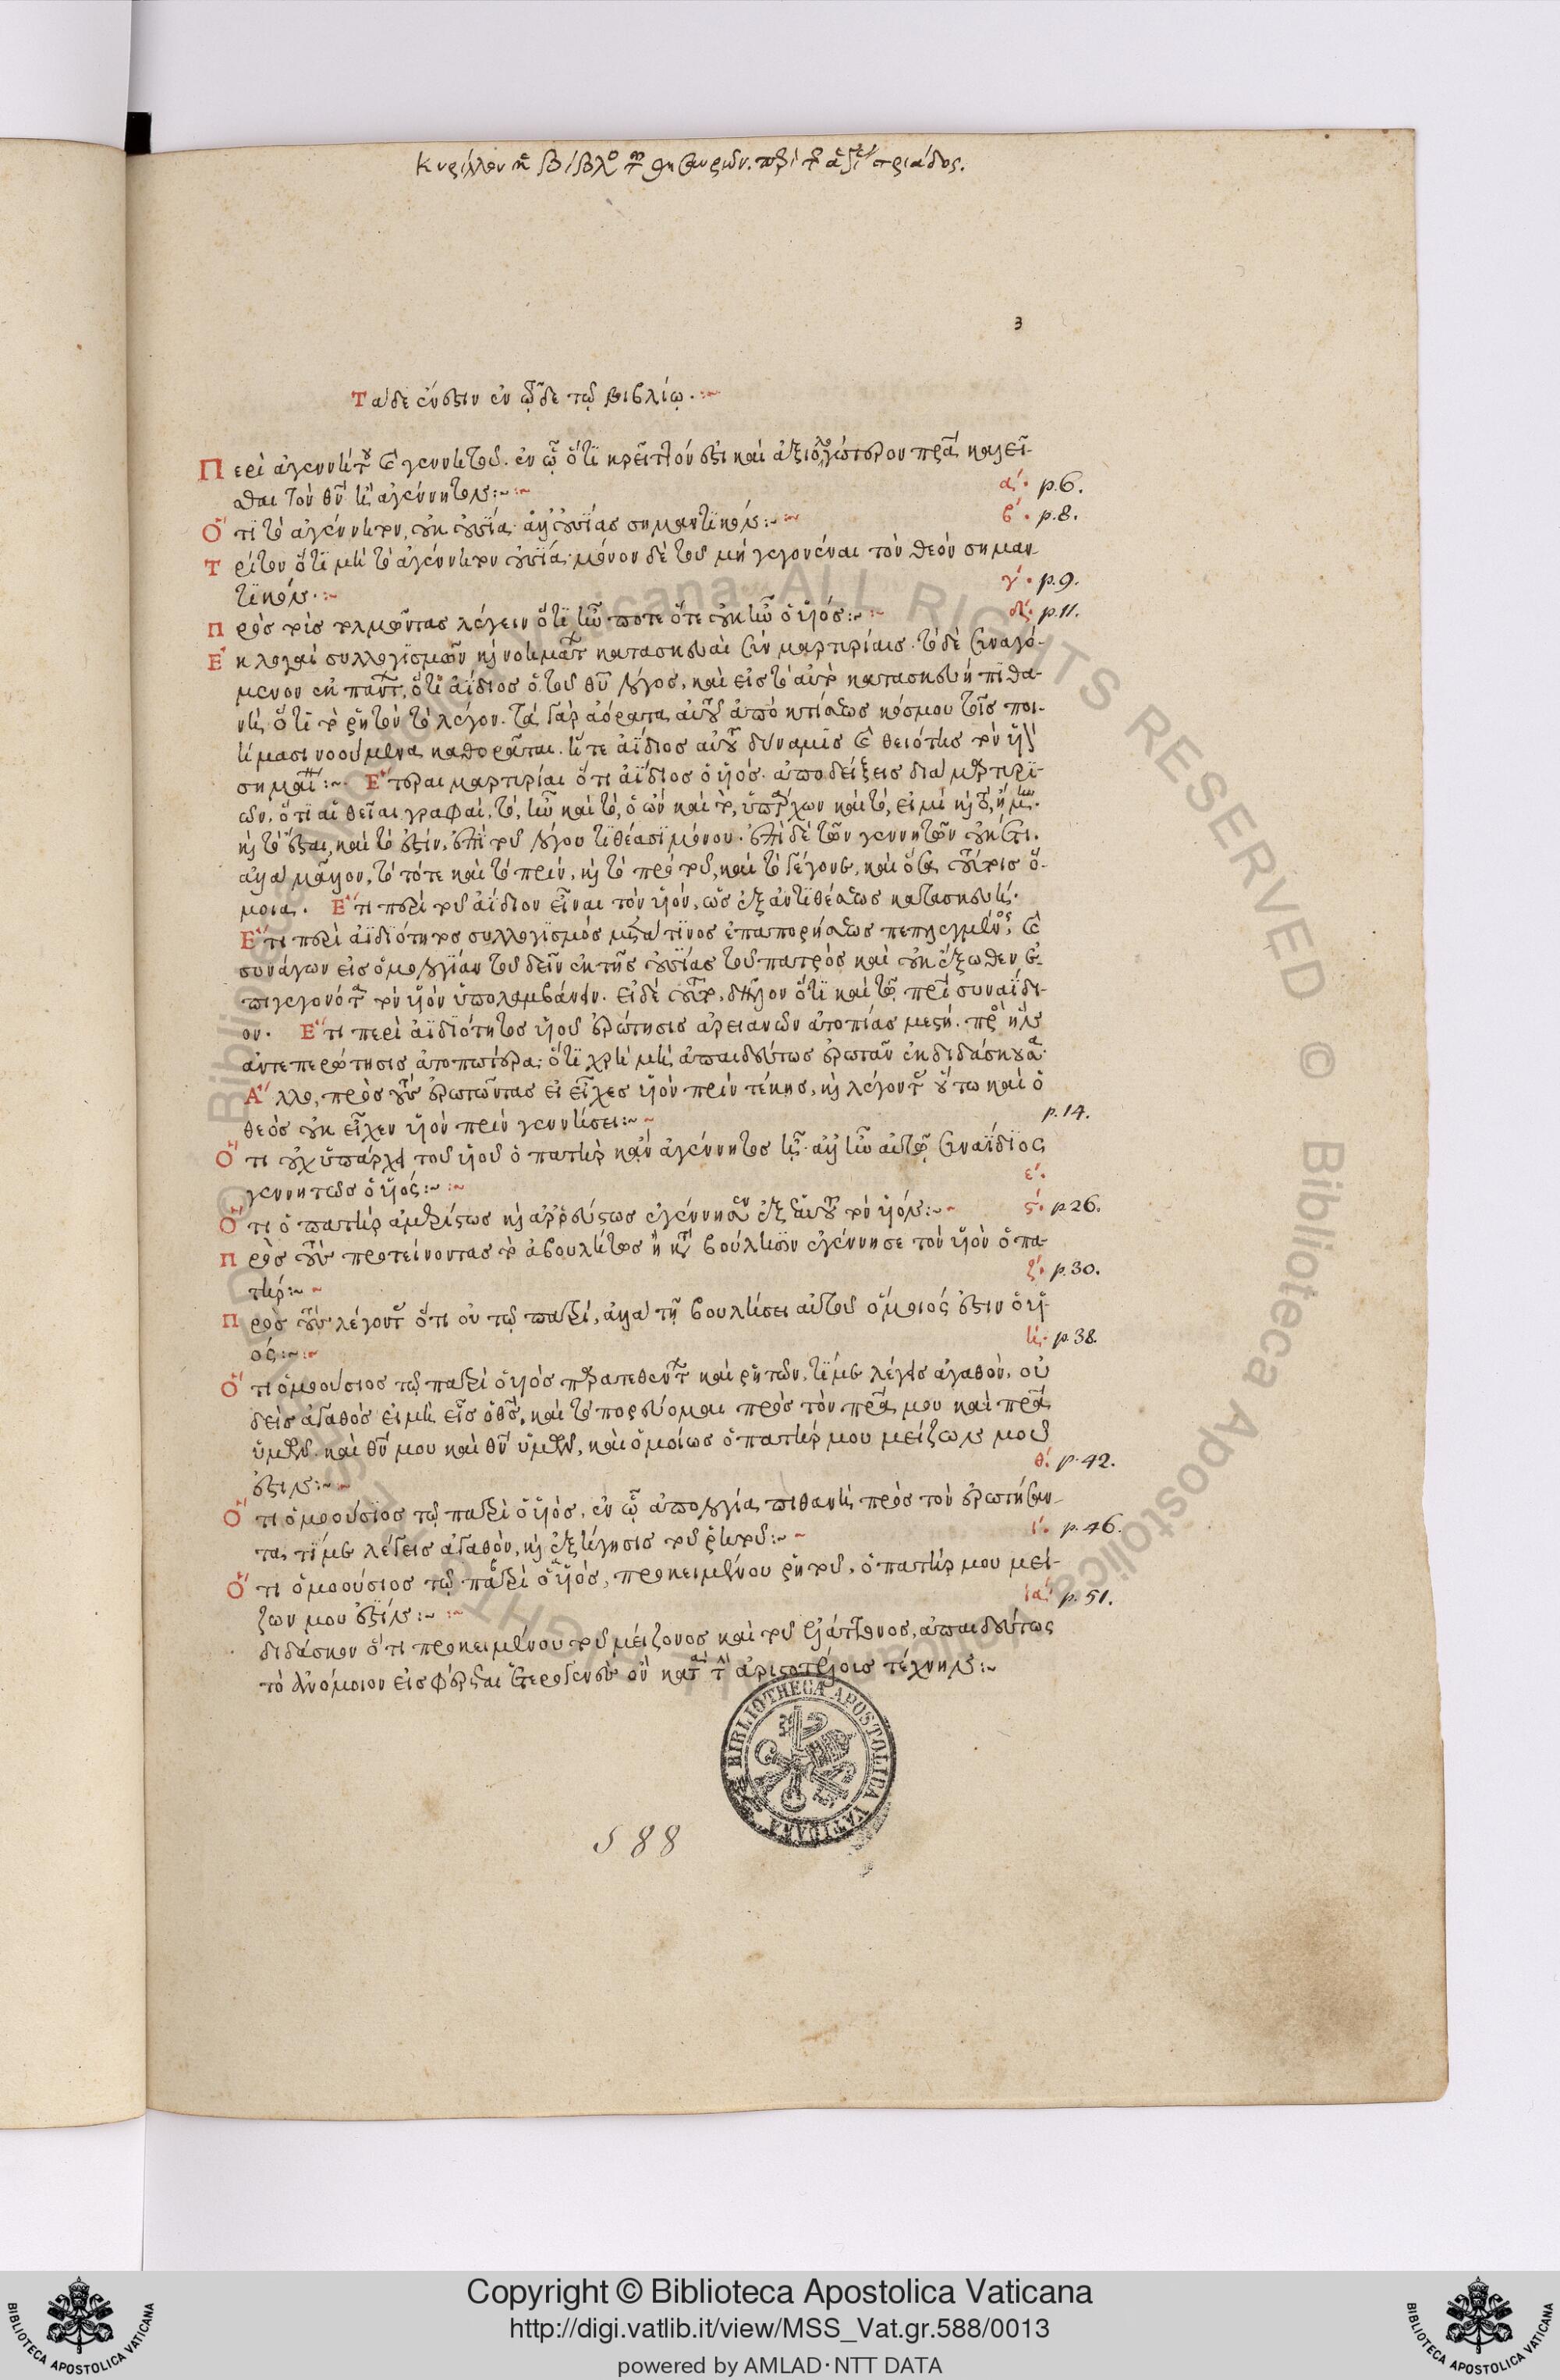 Κυρίλλου ἡ βίβλο τ θησαυρῶν. περὶ τ ἁγί τριάδος.
3
Τάδε ἔνεστιν ἐν τῷδε τῷ βιβλίῳ. :~
Περὶ ἀγεννήτου καὶ γεννητοῦ. ἐν ᾧ ὅτι κρεῖττόν ἐστι καὶ ἀξιολογώτερον πρα καλεῖ-
σθαι τὸν θν ἢ ἀγέννητον :~
α΄. p.6.
Ὅτι τὸ ἀγέννητον, οὐκ οὐσία. ἀλλ' οὐσίας σημαντικόν :~
β΄. p.8.
Τρίτον ὅτι μὴ τὸ ἀγέννητον οὐσία. μόνον δὲ τοῦ μὴ γεγονέναι τὸν θεὸν σημαν-
τικόν. :~
γ΄. p.9.
Πρὸς τοὺς τολμῶντας λέγειν ὅτι ἦν ποτε ὅτε οὐκ ἦν ὁ υἱός :~
δ΄. p.11.
Ἐκλογαὶ συλλογισμῶν καὶ νοημάτ κατασκευαὶ σὺν μαρτυρίαις. τὸ δὲ συναγό-
μενον ἐκ πάντ, ὅτι ἀίδιος ὁ τοῦ θυ λόγος, καὶ εἰς τὸ αὐτὸ κατασκευὴ πιθα-
νὴ ὅτι τὸ ῥητὸν τὸ λέγον. τὰ γὰρ ἀόρατα αὐτοῦ ἀπὸ κτίσεως κόσμου τοῖς ποι-
ήμασι νοούμενα καθορᾶται. ἥ τε ἀίδιος αὐτοῦ δύναμις καὶ θειότης τὸν υἱὸν
σημαί :~ Ἕτεραι μαρτυρίαι ὅτι ἀίδιος ὁ υἱός. ἀποδείξεις διὰ μαρτυρι-
ῶν, ὅτι αἱ θεῖαι γραφαὶ, τὸ, ἦν καὶ τὸ, ὁ ὢν καὶ τὸ, ὑπάρχων καὶ τὸ, εἰμὶ καὶ τὸ, ἤμην.
καὶ τὸ ἔσται, καὶ τὸ ἐστὶν, ἐπὶ τοῦ λόγου τιθέασι μόνου. ἐπὶ δὲ τῶν γεννητῶν οὐκ ἔτι.
ἀλλὰ μᾶλλον, τὸ τότε καὶ τὸ πρὶν, καὶ τὸ πρὸ τοῦ, καὶ τὸ γέγονε, καὶ ὅσα τούτοις ὅ-
μοια. Ἔτι περὶ τοῦ ἀίδιον εἶναι τὸν υἱόν, ὡς ἐξ ἀντιθέσεως κατασκευή.
Ἔτι περὶ ἀιδιότητος συλλογισμὸς μετά τινος ἐπαπορήσεως πεπλεγμένος, καὶ
συνάγων εἰς ὁμολογίαν τοῦ δεῖν ἐκ τῆς οὐσίας τοῦ πατρὸς καὶ οὐκ ἔξωθεν ἐ-
πιγεγονότ τὸν υἱὸν ὑπολαμβάνειν. εἰ δὲ τοῦτο, δῆλον ὅτι καὶ τῷ πρι συναΐδι-
ον. Ἔτι περὶ ἀιδιότητος υἱοῦ ἐρώτησις ἀρειανῶν ἀτοπίας μεστή. πρὸς ἣν
ἀντεπερώτησις ἀτοπωτέρα. ὅτι χρὴ μὴ ἀπαιδεύτως ἐρωτᾶν ἐκδιδάσκουσα.
Ἄλλο, πρὸς τοὺς ἐρωτῶντας εἰ εἶχες υἱὸν πρὶν τέκης, καὶ λέγοντ οὕτω καὶ ὁ
θεὸς οὐκ εἶχεν υἱὸν πρὶν γεννήσει :~
p.14.
Ὅτι οὐχ ὑπάρχει τοῦ υἱοῦ ὁ πατὴρ κἂν ἀγέννητος ᾖ. ἀλλ' ἦν αὐτῷ συναΐδιος
γεννητῶς ὁ υἱός :~
ε΄.
Ὅτι ὁ πατὴρ ἀμερίστως καὶ ἀρρεύστως ἐγέννησεν ἐξ ἑαυτοῦ τὸν υἱόν :~
ϛ΄. p.26.
Πρὸς τοὺς προτείνοντας τὸ ἀβουλήτως ἢ κατὰ βούλησιν ἐγέννησε τὸν υἱὸν ὁ πα-
τήρ :~
ζ΄. p.30.
Πρὸς τοὺς λέγοντ ὅτι οὐ τῷ πατρὶ, ἀλλὰ τῇ βουλήσει αὐτοῦ ὅμοιός ἐστιν ὁ υἱ-
ός :~
η΄. p.38.
Ὅτι ὁμοούσιος τῷ πατρὶ ὁ υἱὸς παρατεθέντ καὶ ῥητῶν, τί με λέγεις ἀγαθὸν, οὐ
δεὶς ἀγαθὸς εἰ μὴ εἷς ὁ θς, καὶ τὸ πορεύομαι πρὸς τὸν πρα μου καὶ πρα
ὑμῶν. καὶ θν μου καὶ θν ὑμῶν, καὶ ὁμοίως ὁ πατήρ μου μείζων μου
ἐστιν :~
θ΄. p.42.
Ὅτι ὁμοούσιος τῷ πατρὶ ὁ υἱὸς, ἐν ᾧ ἀπολογία πιθανὴ πρὸς τὸν ἐρωτήσαν-
τα, τί με λέγεις ἀγαθὸν, καὶ ἐξήγησις τοῦ ῥητοῦ :~
ι΄. p.46.
Ὅτι ὁμοούσιος τῷ πατρὶ ὁ υἱὸς, προκειμένου ῥητοῦ, ὁ πατήρ μου μεί-
ζων μου ἐστίν :~
ια΄ p.51.
διδάσκον ὅτι προκειμένου τοῦ μείζονος καὶ τοῦ ἐλάττονος, ἀπαιδεύτως
τὸ ἀνόμοιον εἰσφέρεται ἑτερογενὲς ὂν κατὰ τὴν ἀριστοτέλους τέχνην :~
BIBLIOTHECA APOSTOLICA VATICANA
588
Copyright © Biblioteca Apostolica Vaticana
http://digi.vatlib.it/view/MSS_Vat.gr.588/0013
powered by AMLAD·NTT DATA
BIBLIOTECA APOSTOLICA VATICANA
BIBLIOTECA APOSTOLICA VATICANA